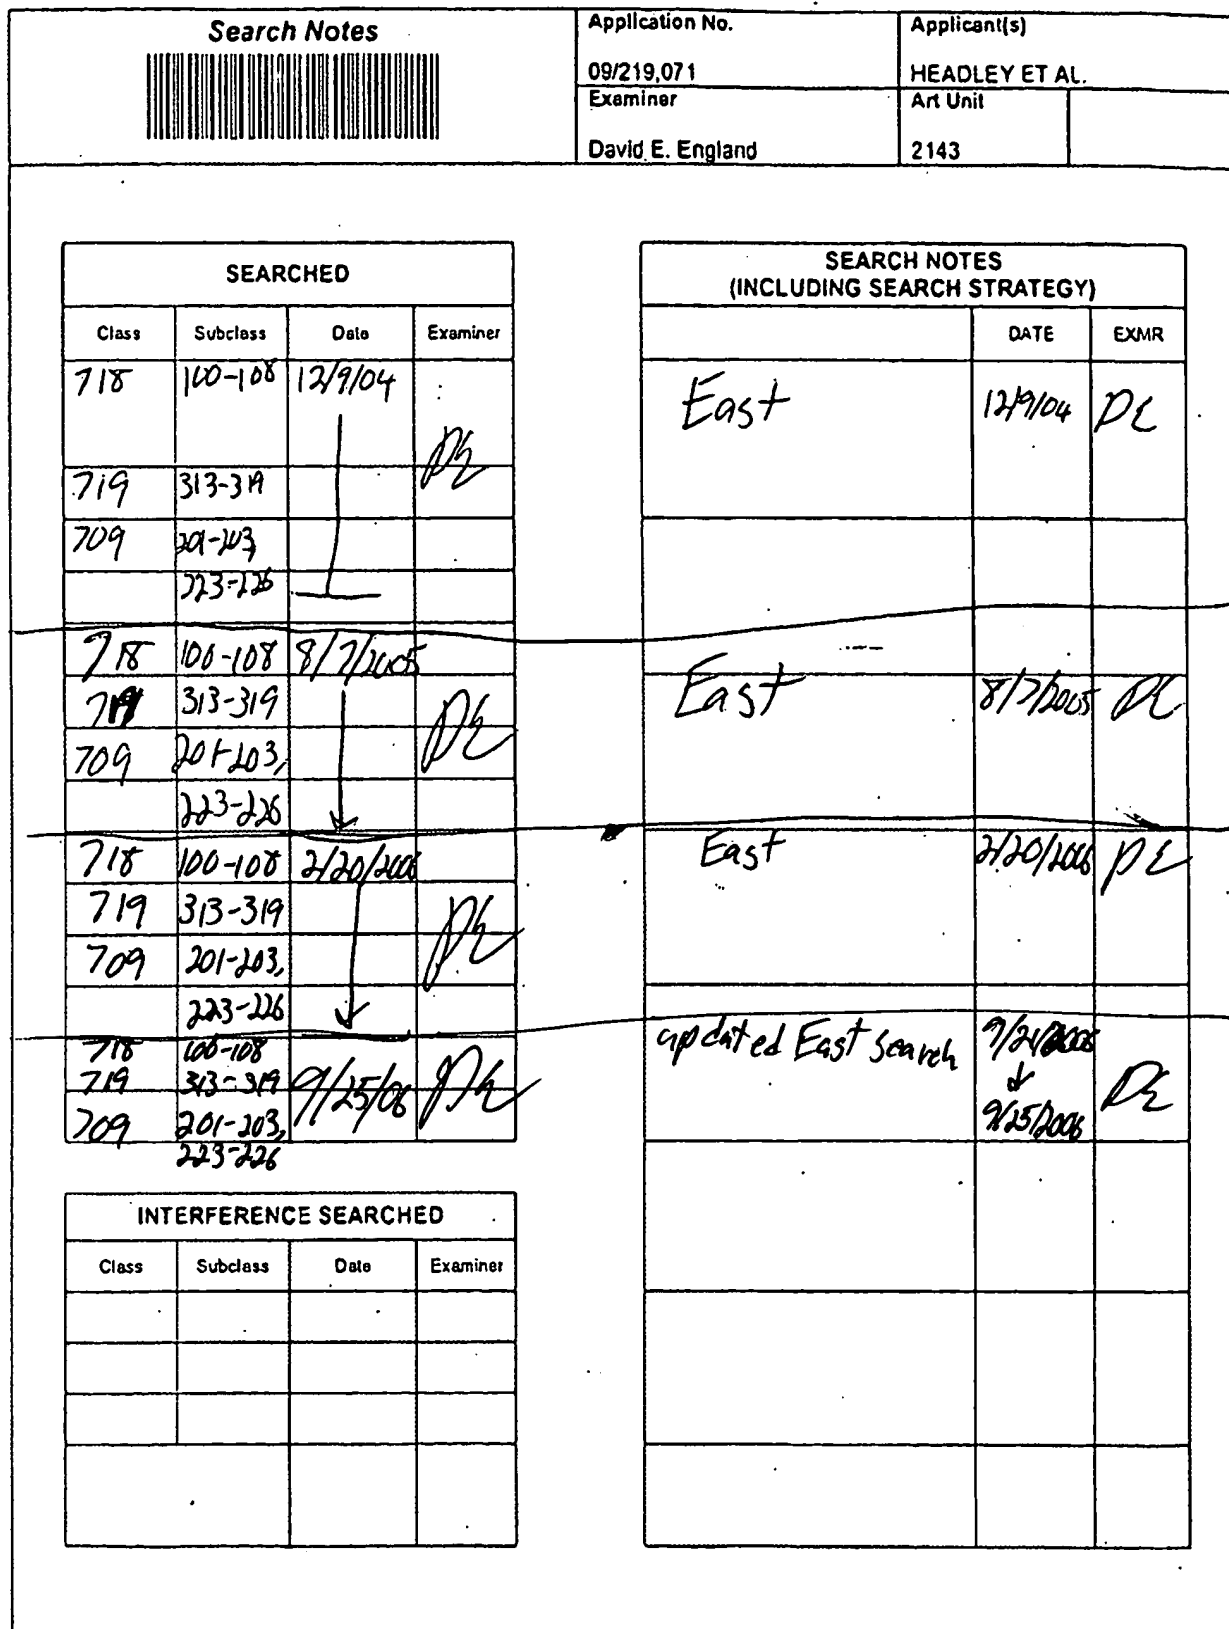 Search Notes
Application No.
09/219,071
Applicant(s)
HEADLEY ET AL.
Examiner
David E. England
Art Unit
2143
SEARCHED
Class Subclass Date Examiner
718 100-108 12/9/04
DE
719 313-319
709 201-203,
223-226
718 100-108 8/7/2005
719 313-319 DE
709 201-203,
223-226
718 100-108 2/20/2006
719 313-319 DE
709 201-203,
223-226
718 100-108
719 313-319 9/25/06 DE
709 201-203,
223-226
INTERFERENCE SEARCHED
Class Subclass Date Examiner
SEARCH NOTES
(INCLUDING SEARCH STRATEGY)
DATE EXMR
East 12/9/04 DE
East 8/7/2005 DE
East 2/20/2006 DE
updated East search 9/21/2006
DE
9/25/2006